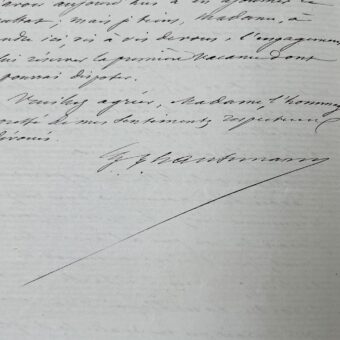 avoir aujourd'hui à en ajourner le
; mais je tiens, Madame, à
ndre ici, vis à vis de vous, l'engagement
lui réserver la première vacance dont
pourrai disposer.
Veuillez agréer, Madame, l'hommage
de mes sentiments respectueux
dévoués.
Haussmann